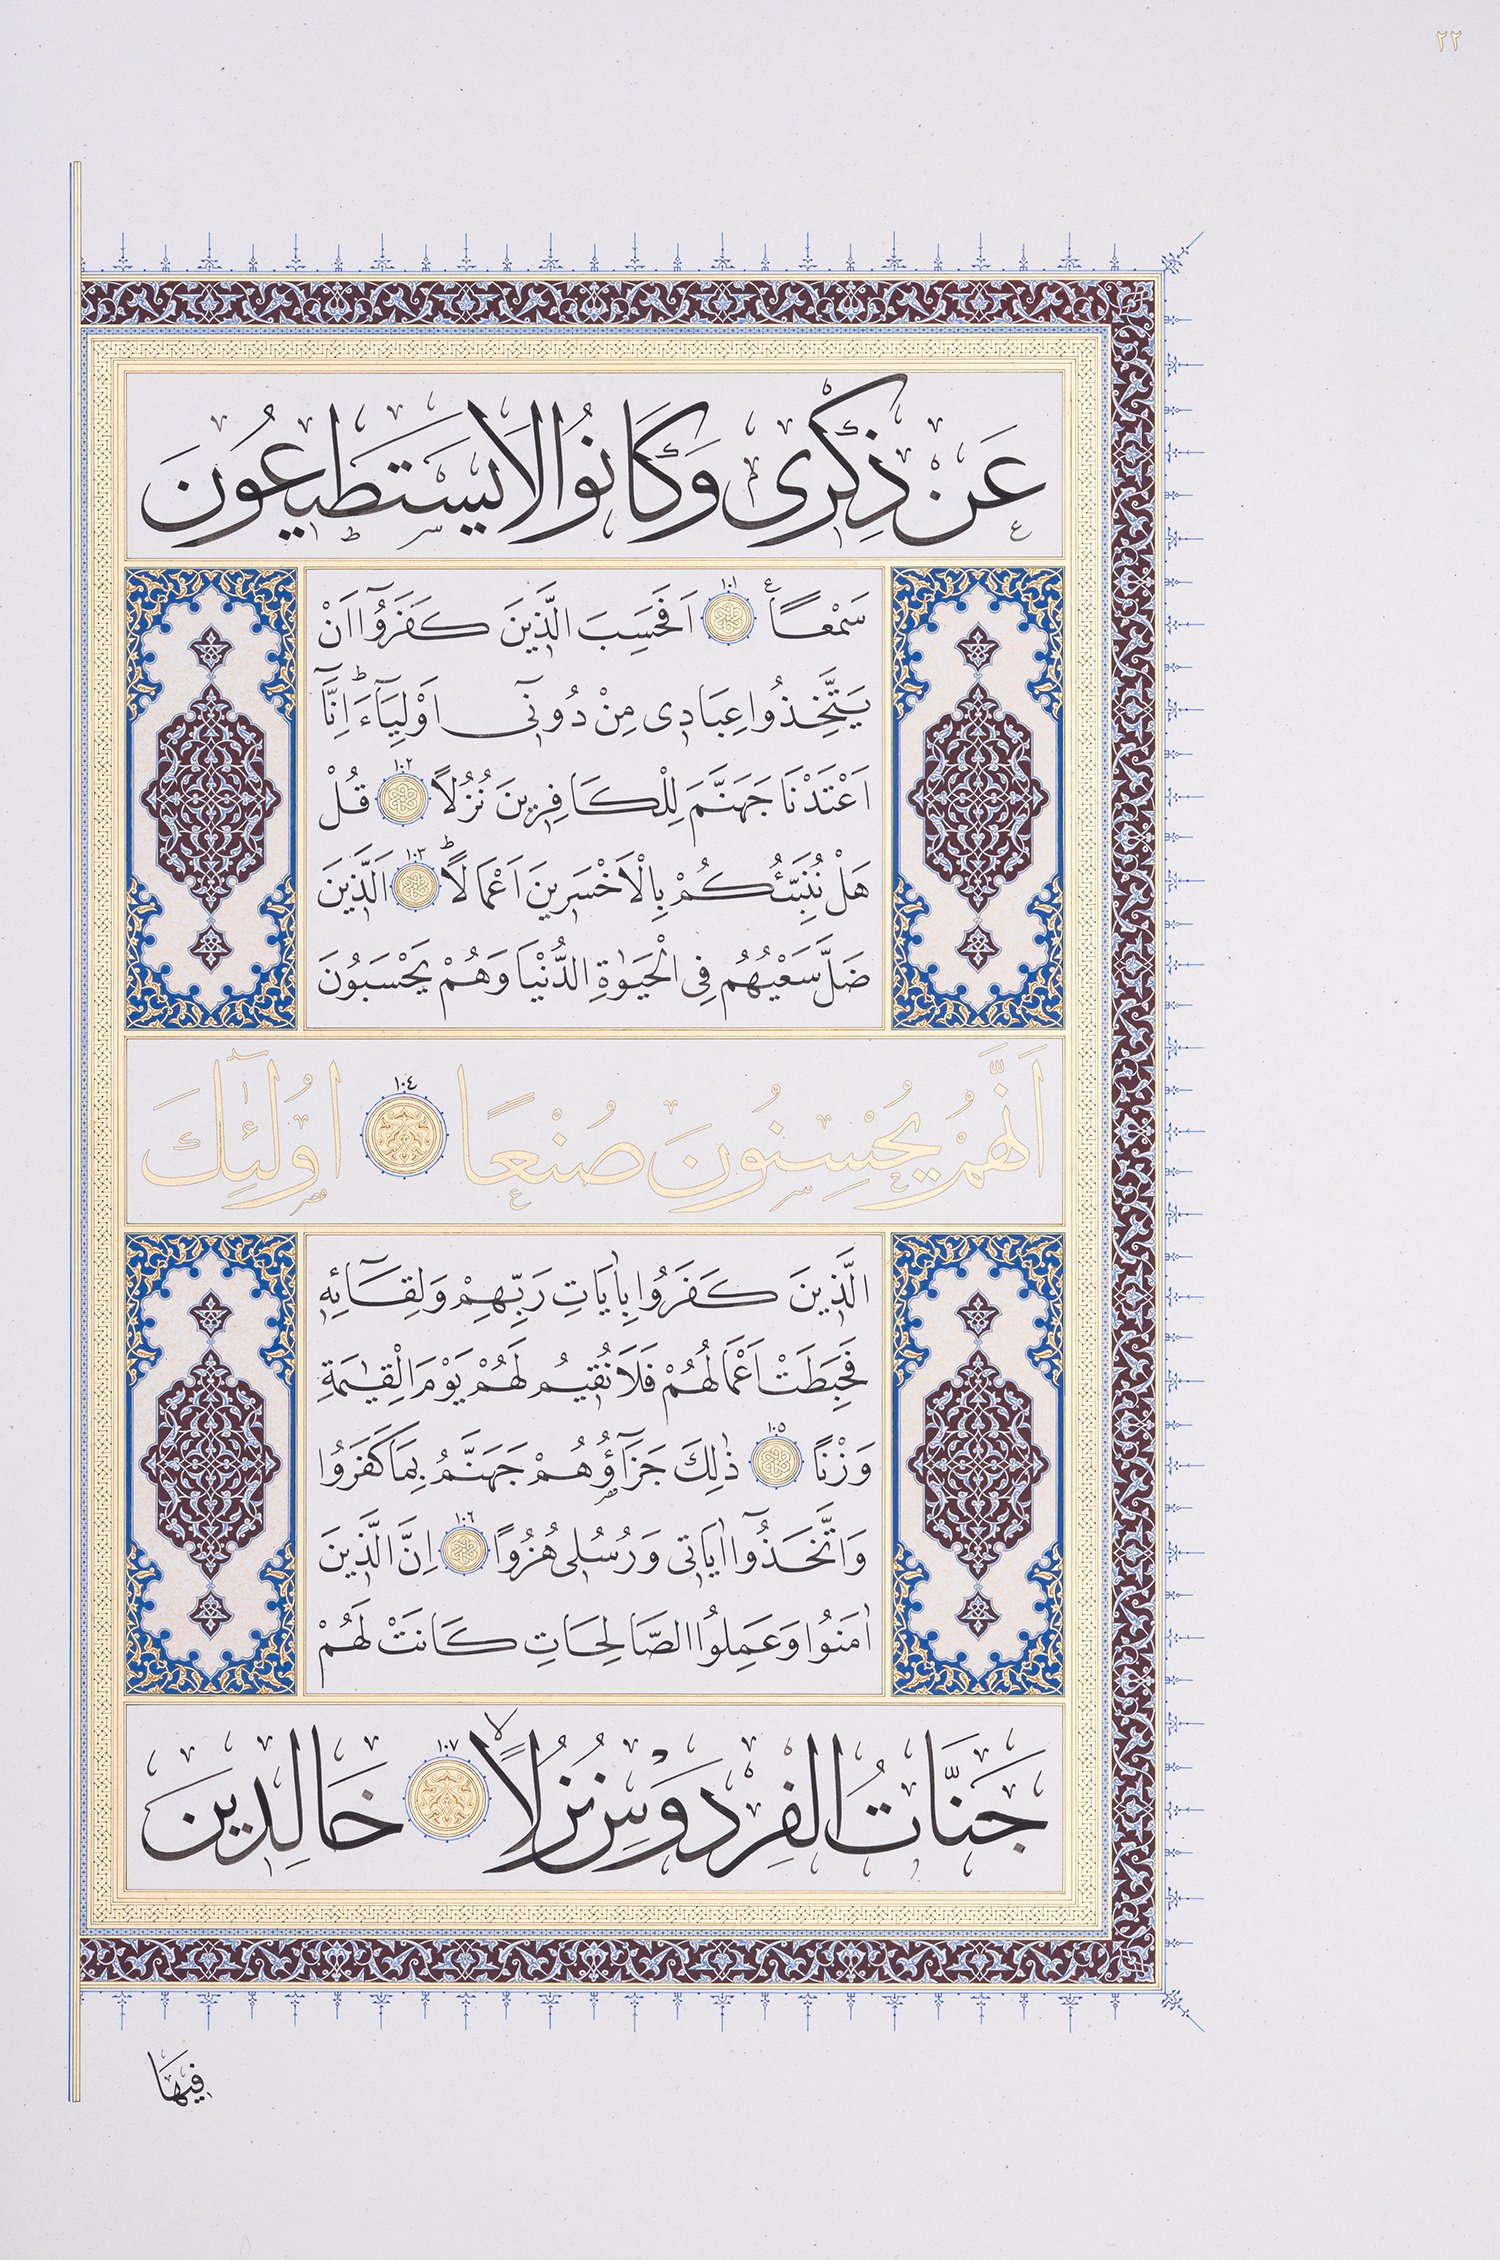 ٢٢
عَنْ ذِكْرٖى وَكَانُوا لَا يَسْتَطٖيعُونَ
سَمْعًا ١٠١ اَفَحَسِبَ الَّذٖينَ كَفَرُٓوا اَنْ
يَتَّخِذُوا عِبَادٖى مِنْ دُونٖٓى اَوْلِيَٓاءَ اِنَّٓا
اَعْتَدْنَا جَهَنَّمَ لِلْكَافِرٖينَ نُزُلًا ١٠٢ قُلْ
هَلْ نُنَبِّئُكُمْ بِالْاَخْسَرٖينَ اَعْمَالًا ١٠٣ اَلَّذٖينَ
ضَلَّ سَعْيُهُمْ فِى الْحَيٰوةِ الدُّنْيَا وَهُمْ يَحْسَبُونَ
اَنَّهُمْ يُحْسِنُونَ صُنْعًا ١٠٤ اُو۬لٰٓئِكَ
الَّذٖينَ كَفَرُوا بِاٰيَاتِ رَبِّهِمْ وَلِقَٓائِهٖ
فَحَبِطَتْ اَعْمَالُهُمْ فَلَا نُقٖيمُ لَهُمْ يَوْمَ الْقِيٰمَةِ
وَزْنًا ١٠٥ ذٰلِكَ جَزَٓاؤُ۬هُمْ جَهَنَّمُ بِمَا كَفَرُوا
وَاتَّخَذُٓوا اٰيَاتٖى وَرُسُلٖى هُزُوًا ١٠٦ اِنَّ الَّذٖينَ
اٰمَنُوا وَعَمِلُوا الصَّالِحَاتِ كَانَتْ لَهُمْ
جَنَّاتُ الْفِرْدَوْسِ نُزُلًا ١٠٧ خَالِدٖينَ
فٖيهَا